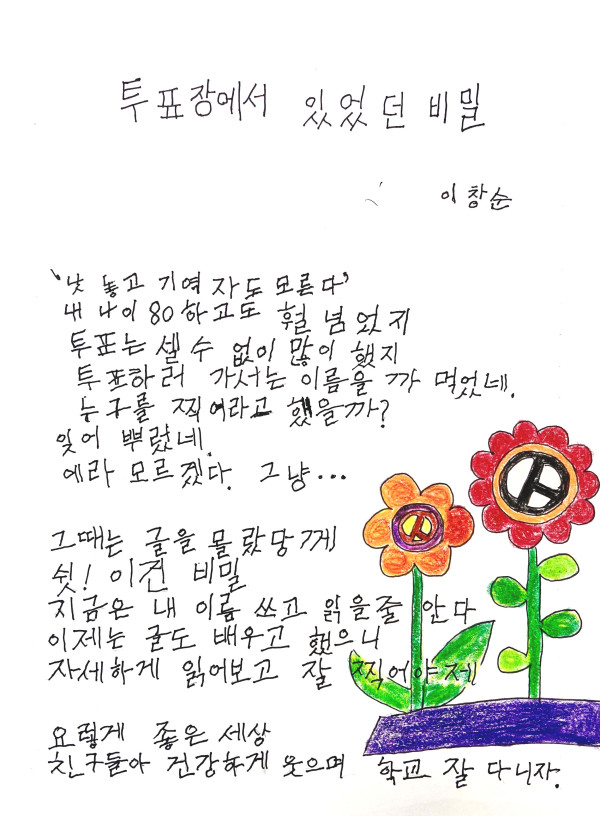 투표장에서 있었던 비밀
이창순
'낫 놓고 기역 자도 모른다'
내 나이 80하고도 훨 넘었지
투표는 셀 수 없이 많이 했지
투표하러 가서는 이름을 까 먹었네.
누구를 찍어라고 했을까?
잊어 뿌랐네.
에라 모르겠다. 그냥...
그때는 글을 몰랐당께
쉿! 이건 비밀
지금은 내 이름 쓰고 읽을줄 안다
이제는 글도 배우고 했으니
자세하게 읽어보고 잘 찍어야제
요렇게 좋은 세상
친구들아 건강하게 웃으며 학교 잘 다니자.